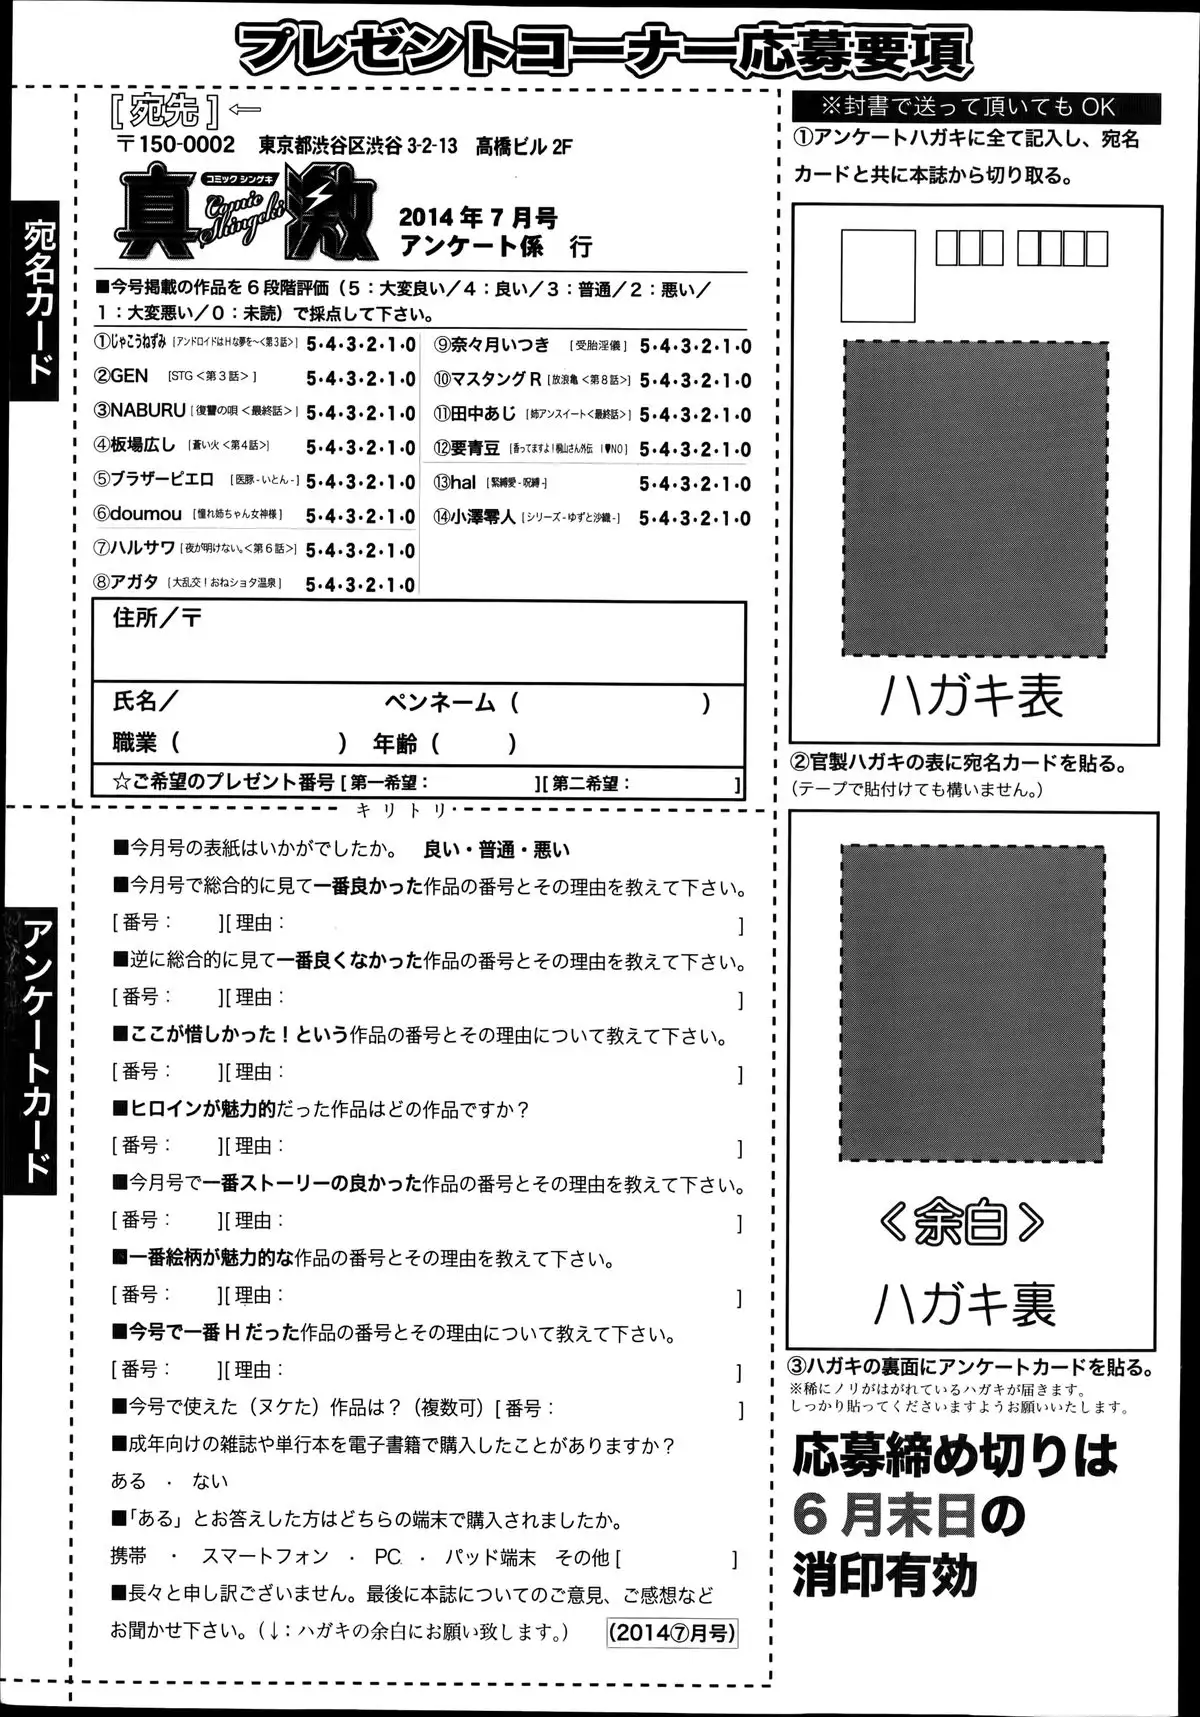 プレゼントコーナー応募要項
[宛先]←
〒150-0002 東京都渋谷区渋谷 3-2-13 高橋ビル 2F
コミック シンゲキ
真激
Comic Shingeki
2014 年 7 月号
アンケート係 行
■今号掲載の作品を 6 段階評価（5：大変良い／4：良い／3：普通／2：悪い／
1：大変悪い／0：未読）で採点して下さい。
①じゃこうねずみ [アンドロイドはHな夢を〜<第3話>] 5・4・3・2・1・0
②GEN [STG <第3話>] 5・4・3・2・1・0
③NABURU [復讐の唄 <最終話>] 5・4・3・2・1・0
④板場広し [蒼い火 <第4話>] 5・4・3・2・1・0
⑤ブラザーピエロ [医豚-いとん-] 5・4・3・2・1・0
⑥doumou [憧れ姉ちゃん女神様] 5・4・3・2・1・0
⑦ハルサワ [夜が明けない。<第6話>] 5・4・3・2・1・0
⑧アガタ [大乱交！おねショタ温泉] 5・4・3・2・1・0
⑨奈々月いつき [受胎淫儀] 5・4・3・2・1・0
⑩マスタング R [放浪亀 <第8話>] 5・4・3・2・1・0
⑪田中あじ [姉アンスイート<最終話>] 5・4・3・2・1・0
⑫要青豆 [香ってますよ！桐山さん外伝 I♥NO] 5・4・3・2・1・0
⑬hal [緊縛愛-呪縛-] 5・4・3・2・1・0
⑭小澤零人 [シリーズ-ゆずと沙織-] 5・4・3・2・1・0
住所／〒
氏名／ ペンネーム（ ）
職業（ ） 年齢（ ）
☆ご希望のプレゼント番号 [第一希望： ][第二希望： ]
キリトリ
宛名カード
アンケートカード
■今月号の表紙はいかがでしたか。 良い・普通・悪い
■今月号で総合的に見て一番良かった作品の番号とその理由を教えて下さい。
[番号： ][理由： ]
■逆に総合的に見て一番良くなかった作品の番号とその理由を教えて下さい。
[番号： ][理由： ]
■ここが惜しかった！という作品の番号とその理由について教えて下さい。
[番号： ][理由： ]
■ヒロインが魅力的だった作品はどの作品ですか？
[番号： ][理由： ]
■今月号で一番ストーリーの良かった作品の番号とその理由を教えて下さい。
[番号： ][理由： ]
■一番絵柄が魅力的な作品の番号とその理由を教えて下さい。
[番号： ][理由： ]
■今号で一番 H だった作品の番号とその理由について教えて下さい。
[番号： ][理由： ]
■今号で使えた（ヌケた）作品は？（複数可）[番号： ]
■成年向けの雑誌や単行本を電子書籍で購入したことがありますか？
ある ・ ない
■「ある」とお答えした方はどちらの端末で購入されましたか。
携帯 ・ スマートフォン ・ PC ・ パッド端末 その他 [ ]
■長々と申し訳ございません。最後に本誌についてのご意見、ご感想など
お聞かせ下さい。（↓：ハガキの余白にお願い致します。）
(2014⑦月号)
※封書で送って頂いても OK
①アンケートハガキに全て記入し、宛名
カードと共に本誌から切り取る。
ハガキ表
②官製ハガキの表に宛名カードを貼る。
（テープで貼付けても構いません。）
＜余白＞
ハガキ裏
③ハガキの裏面にアンケートカードを貼る。
※稀にノリがはがれているハガキが届きます。
しっかり貼ってくださいますようお願いいたします。
応募締め切りは
6 月末日の
消印有効